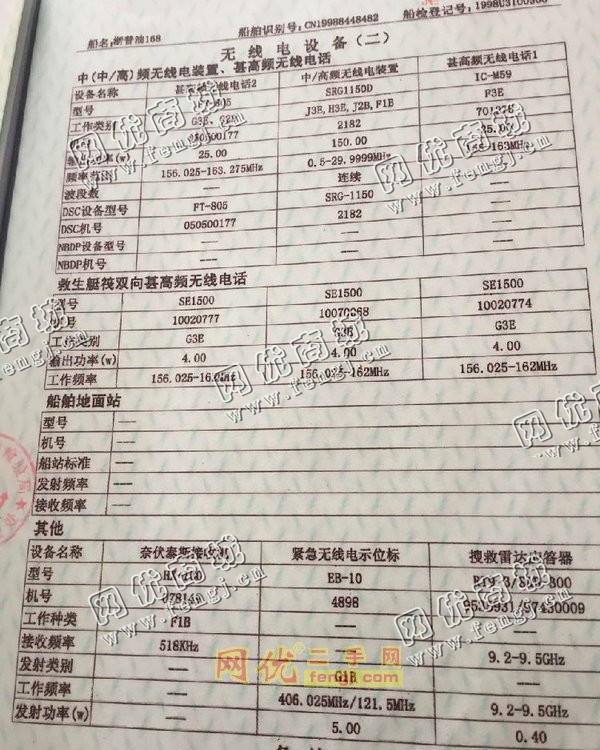 船名:浙普油168 船舶识别号:CN19988448482 船检登记号:
无线电设备(二)
中(中/高)频无线电装置、甚高频无线电话
设备名称 甚高频无线电话2 中/高频无线电装置 甚高频无线电话1
型号 SRG1150D IC-M59
工作类别 J3E, H3E, J2B, F1B F3E
050500177 2182
输出功率(w) 25.00 150.00 25.00
频率范围 156.025-163.275MHz 0.5-29.9999MHz
波段数 --- 连续 ---
DSC设备型号 FT-805 SRG-1150 ---
DSC机号 050500177 2182 ---
NBDP设备型号 --- --- ---
NBDP机号 --- --- ---
救生艇筏双向甚高频无线电话
型号 SE1500 SE1500 SE1500
机号 10020777 10020774
工作类别 G3E G3E G3E
输出功率(w) 4.00 4.00 4.00
工作频率 156.025-162MHz 156.025-162MHz 156.025-162MHz
船舶地面站
型号 ---
机号 ---
船站标准 ---
发射频率 ---
接收频率 ---
其他
设备名称 奈伏泰斯接收机 紧急无线电示位标 搜救雷达应答器
型号 EB-10
机号 4898
工作种类 F1B --- ---
接收频率 518KHz --- 9.2-9.5GHz
发射类别 --- G1B ---
工作频率 --- 406.025MHz/121.5MHz 9.2-9.5GHz
发射功率(w) --- 5.00 0.40
网优商城
www.fengj.cn
网优二手网
fengj.com